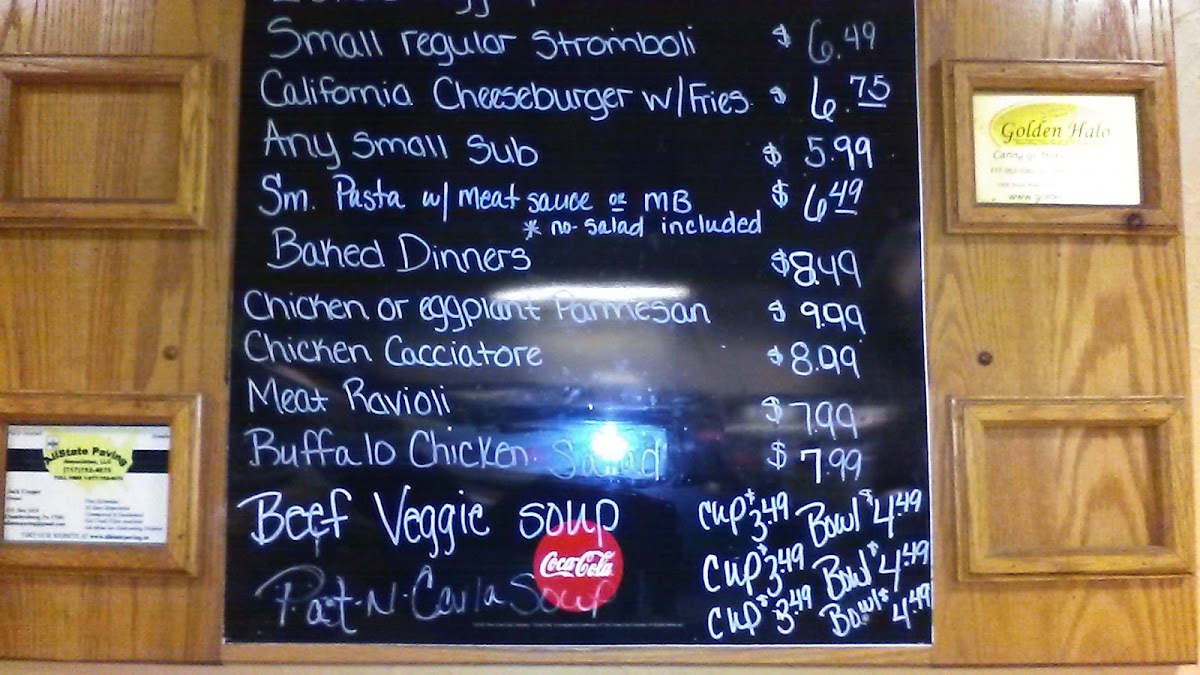 Small regular Stromboli $ 6.49
California Cheeseburger w/Fries $ 6.75
Any Small Sub $ 5.99
Sm. Pasta w/ Meat sauce or MB $ 6.49
* no salad included
Baked Dinners $8.49
Chicken or eggplant Parmesan $ 9.99
Chicken Cacciatore $8.99
Meat Ravioli $ 7.99
Buffalo Chicken Salad $ 7.99
Beef Veggie Soup Cup $3.49 Bowl $4.49
Cup $3.49 Bowl $4.49
Coca-Cola
Cup $3.49 Bowl $4.49
Golden Halo
AllState Paving